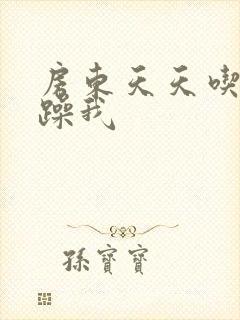 房東天天喫
躁我
孫寶寶